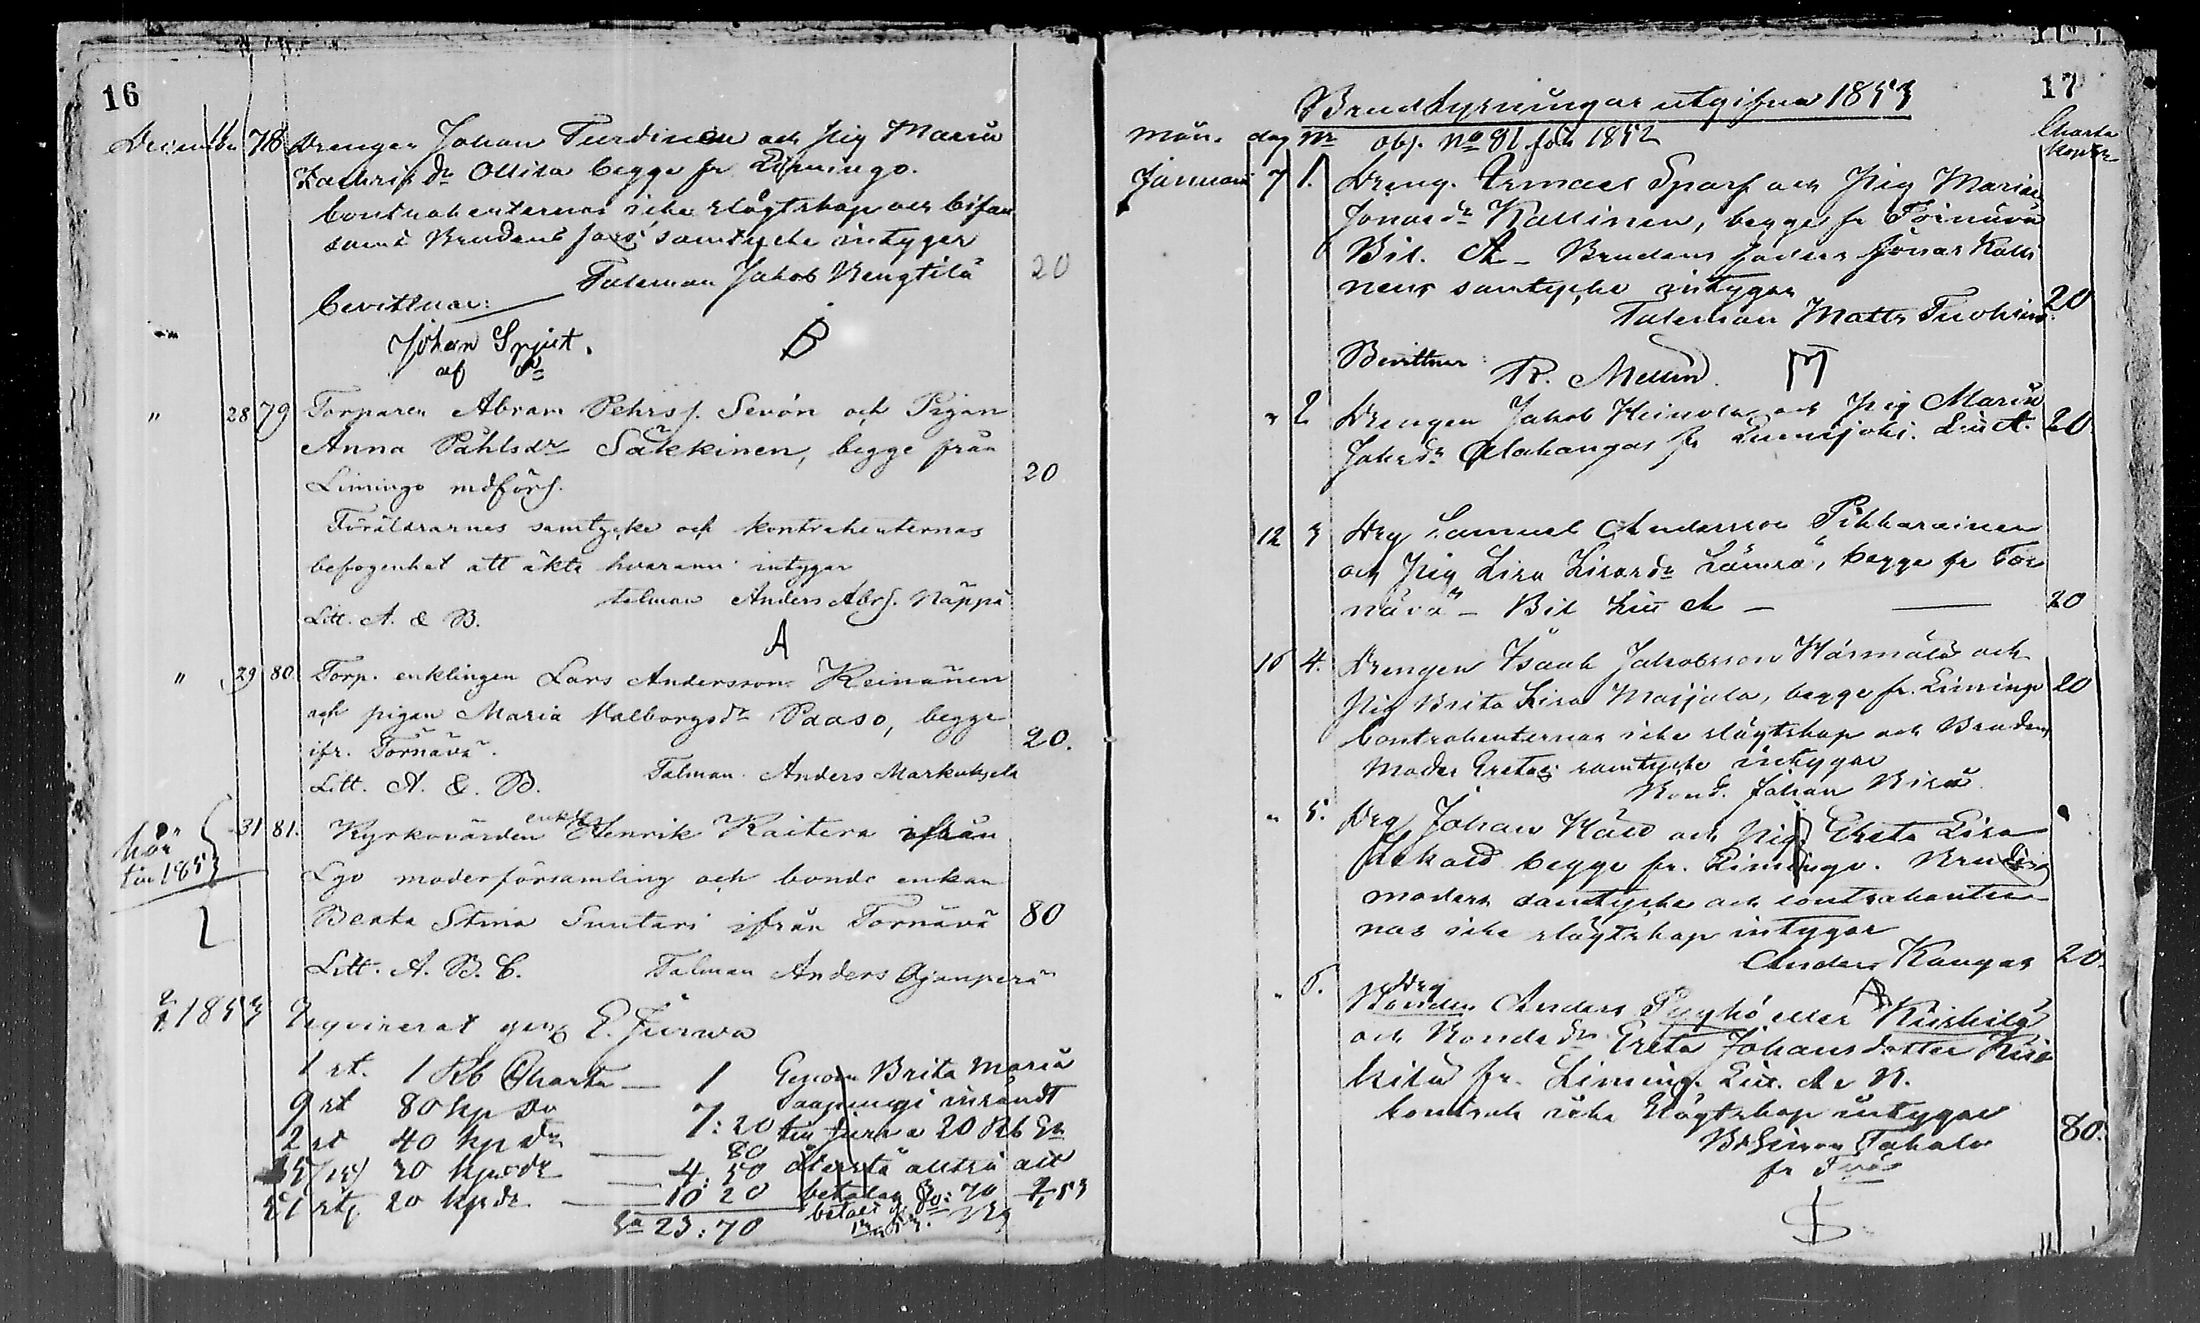 16
Decemb. 16. 78 Drengen Johan Turdinen och Pig Maria
Zachrisdr Ollila begge fr Limingo.
Contrahenternas icke slägtskap och bifall
samt Brudens fars samtycke intygar
Taleman Jakob Rengtilä 20
bevittnar:
Johan Spjut.
af
B
" 28 79 Torparen Abram Pehrss. Sevón och Pigan
Anna Påhlsdr Säkkinen, begge från
Limingo mdförs. 20
Föräldrarnes samtycke och kontrahenternas
befogenhet att äkta hvarann intygar
talman Anders Abrs. Näppä
Litt. A. & B.
A
" 29 80. Torp. enklingen Lars Andersson Keinänen
och pigan Maria Valborgsdr Paaso, begge
ifr. Tornävä. 20.
Talman Anders Markuksela
Litt. A. & B.
31 81. Kyrkovärden enkl. Henrik Raitera ifrån
hör
till 1853
Lgo moderförsamling och bonde enkan
Beata Stina Suutari ifrån Tornävä 80
Litt. A. B. C. Talman Anders Ojanperä
1853 Reqvirerat gen E. Jurwa
1 st. 1 Rb Charta — 1
9 st 80 kp do 7:20
2 st 40 kp do — 80
20 kp do — 4:50
51 st 20 kp do — 10 20
Sa 23:70
Genom Brita Maria
insändt
till Jurwa 20 Rb Sr
återstå alltså att
betalas 3:70
betalt
17
Brudlysningar utgifna 1853
Mån. dag No obs. No 81 för 1852 Charta
Januari 7 1. Dreng. Ermael Sparf och Pig Maria
Jonasdr Kallinen, begge fr Törnävä
Bil. A – Brudens faders Jonas Kalli
nens samtycke intygar 20
Taleman Matts Tuohino.
Bevittnar R. Mellin.
" 2 Drengen Jakob Heinola och Pig Maria
Jakdr Alakangas fr Lumijoki. Litt A. 20.
12 3 Drg Samuel Andersson Pikkarainen
och Pig Lisa Lisasdr Lämsä, begge fr Tor
nävä – Bil Litt A — — 20
16 4. Drengen Isaak Jakobsson Härmälä och
Pig Brita Lisa Maijala, begge fr. Limingo 20
Contrahenternas icke slägtskap och Brudens
Moder Gretas samtycke intygar
Bond. Johan
" 5. Drg Johan och Pig Greta Lisa
begge fr. Limingo. Brudens
moders samtycke och contrahenter
nas icke slägtskap intygar
Anders Kangas 20.
" 6. Drg
Bonden Anders eller Kiiskilä
och Bondedr Greta Johansdotter Kiis
kilä fr. Limingo Litt. A & B.
Contrah icke Slägtskap intygar
Simon Takalo 80.
fr